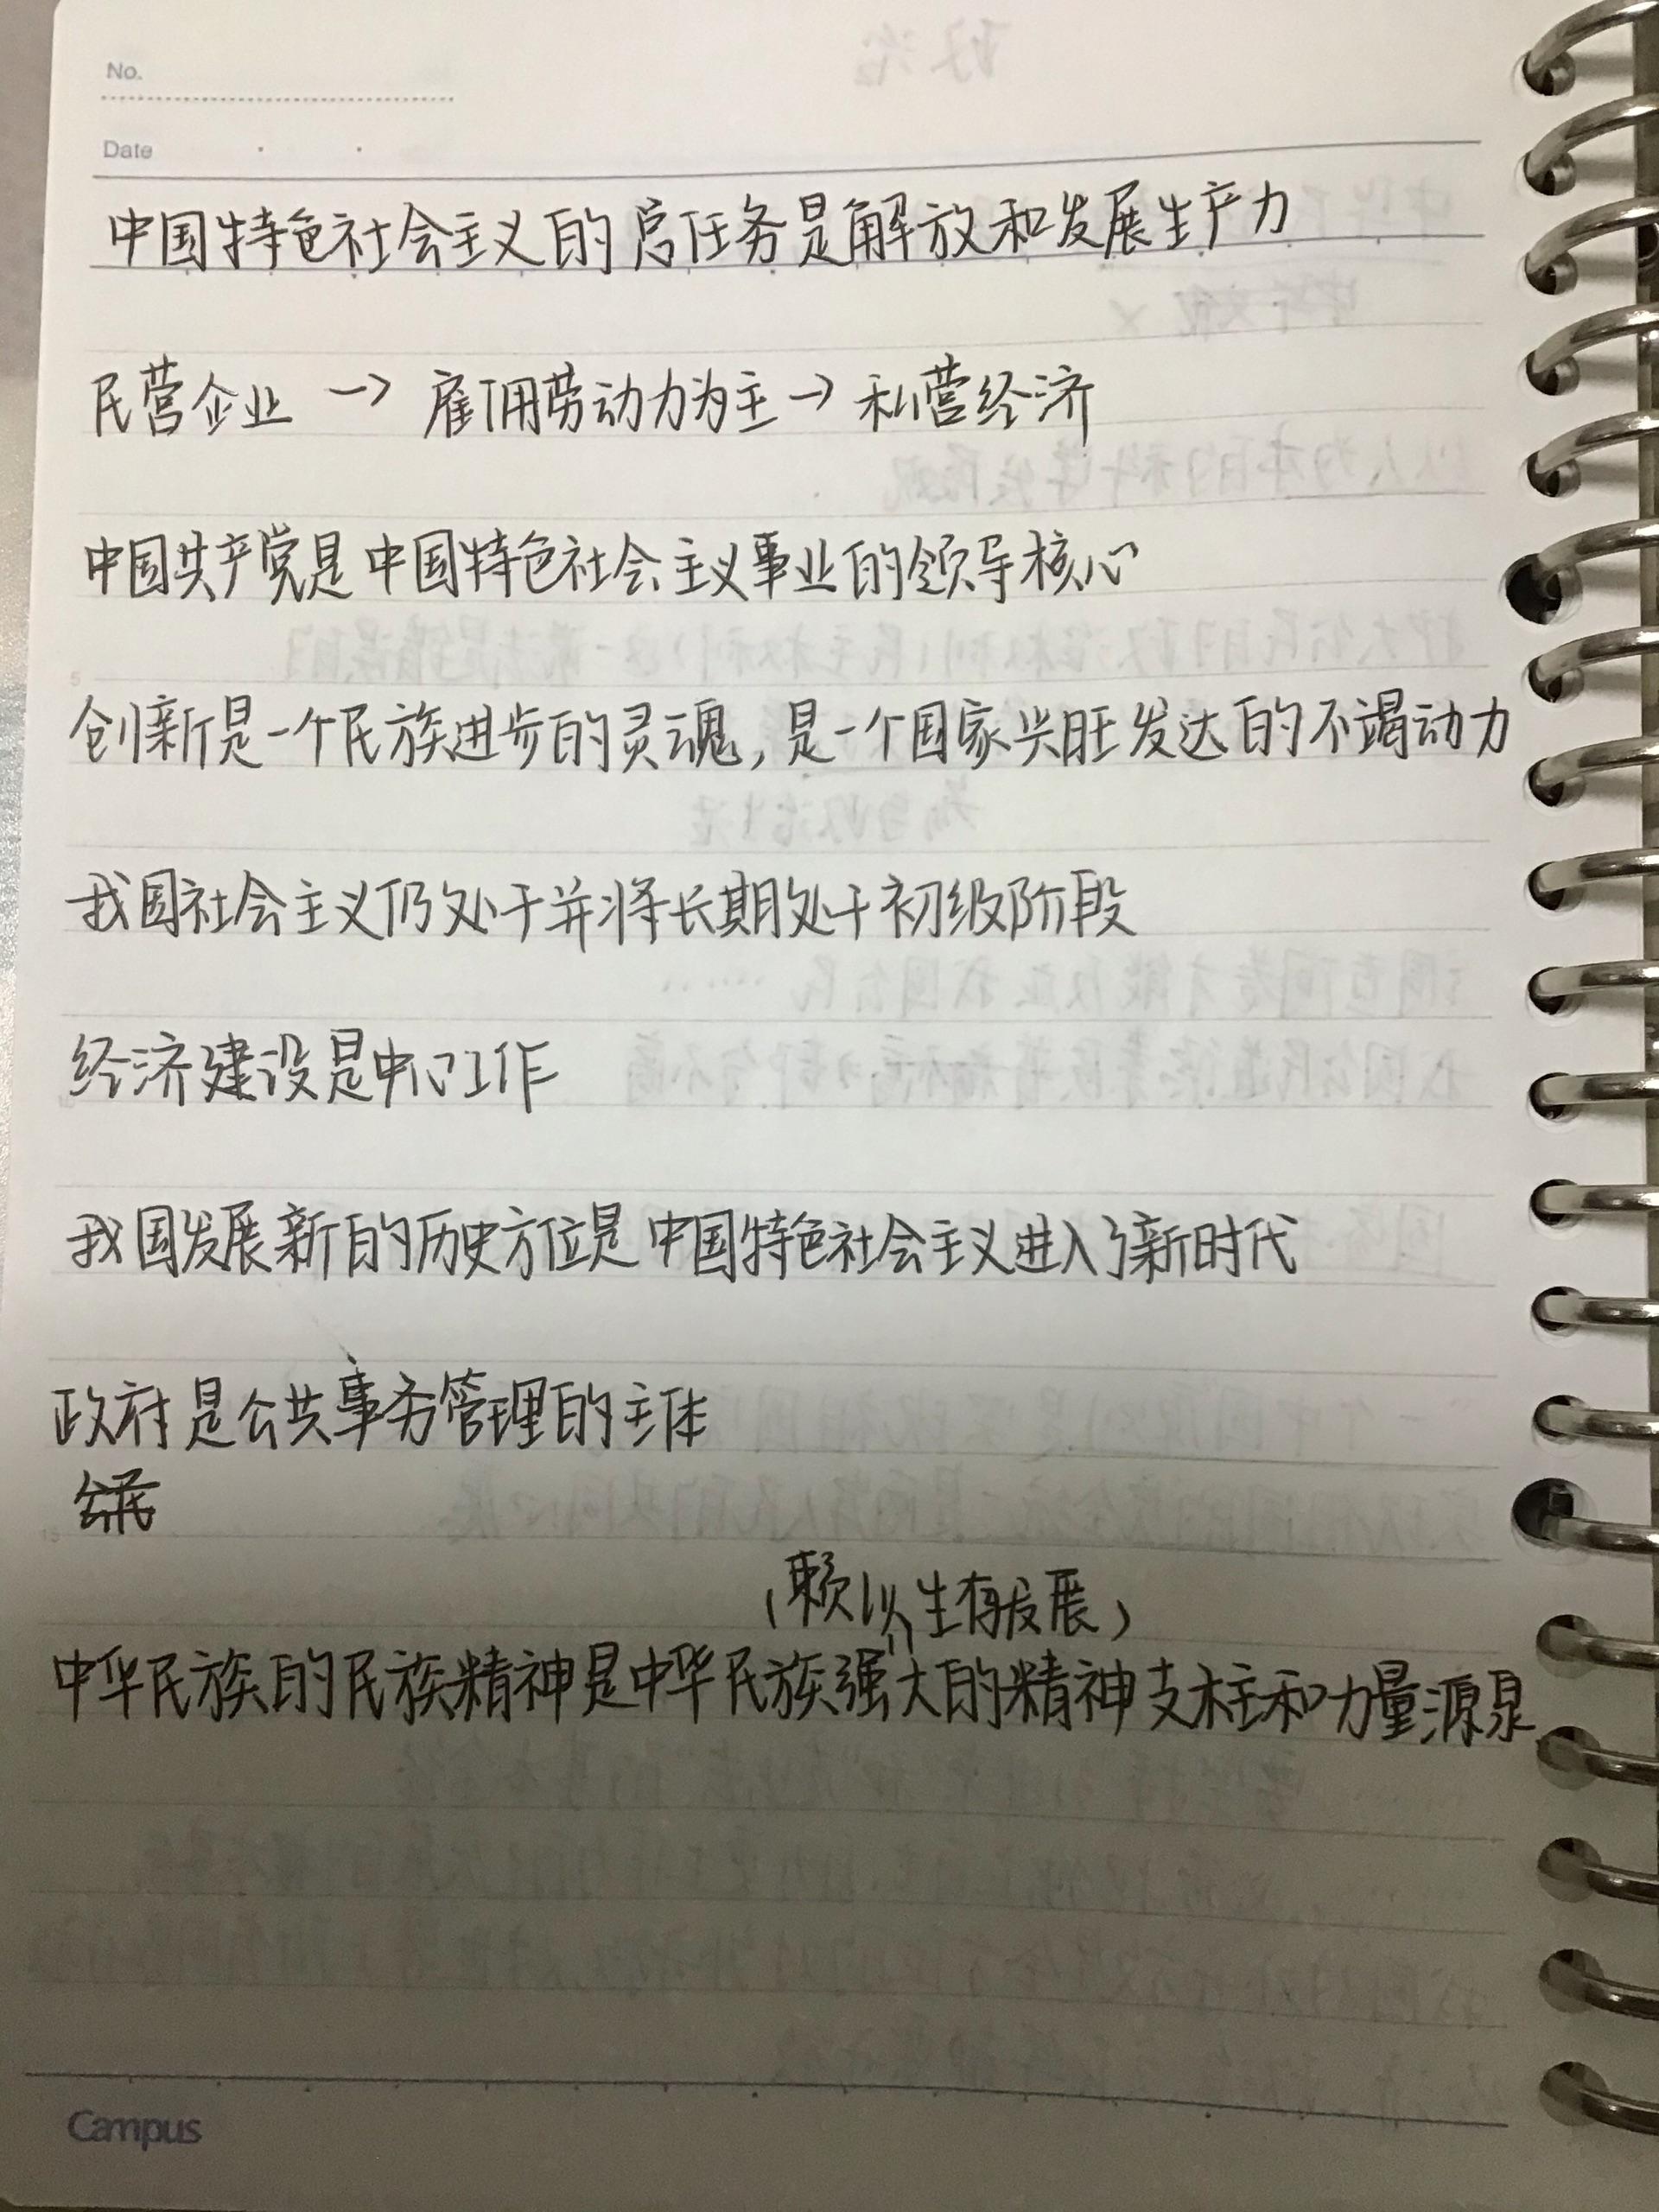 No.
Date
中国特色社会主义的总任务是解放和发展生产力
民营企业 → 雇佣劳动力为主 → 私营经济
中国共产党是中国特色社会主义事业的领导核心
创新是一个民族进步的灵魂，是一个国家兴旺发达的不竭动力
我国社会主义仍处于并将长期处于初级阶段
经济建设是中心工作
我国发展新的历史方位是中国特色社会主义进入了新时代
政府是公共事务管理的主体
(赖以生存发展)
中华民族的民族精神是中华民族强大的精神支柱和力量源泉
Campus